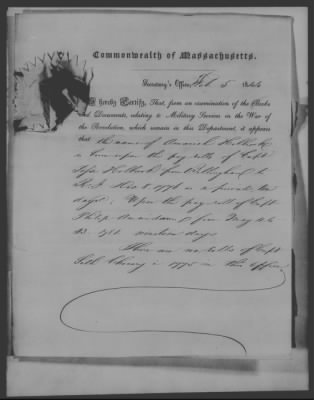 Commonwealth of Massachusetts.
Secretary's Office, Feb 5
I hereby Certify, That, from an examination of the Books
and Documents, relating to Military Services in the War of
the Revolution, which remain in this Department, it appears
that the name of Holbrook
is borne upon the pay rolls of Capt
Holbrook from Bellingham, to
R. I. Dec 8, 1776 as a private,
days; Upon the pay roll of Capt
from May
days.
There are no rolls of Capt
Seth 1775 in this Office